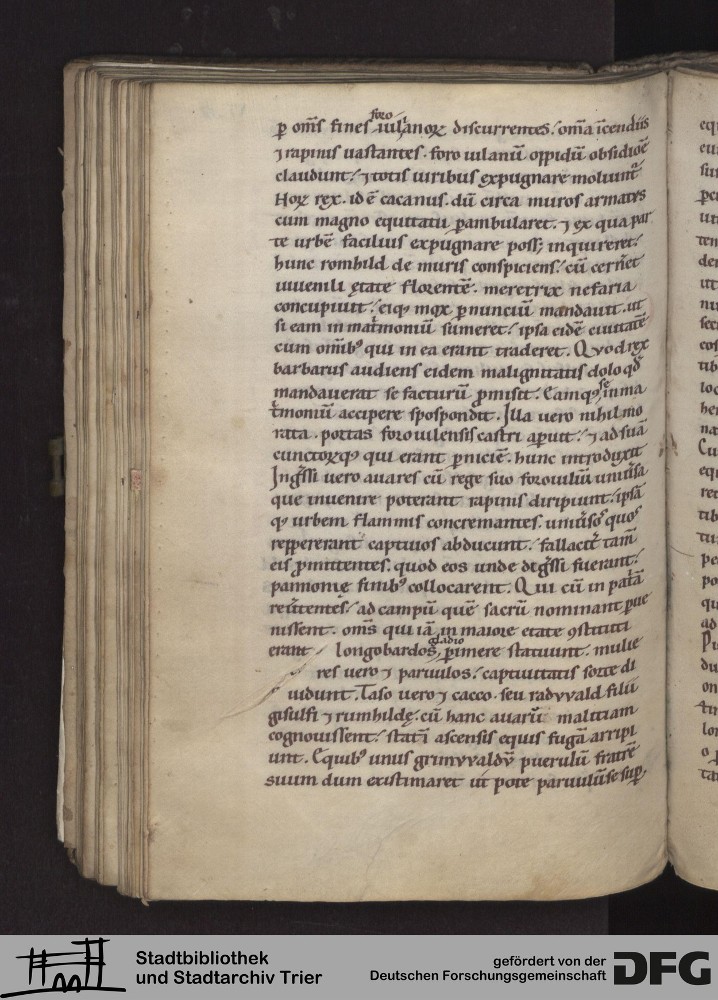 foro
ꝑ om̄s fines iulanoꝝ discurrentes. om̄a ĩcendiis
⁊ rapinis uastantes. foro iulanū oppidū obsidiōe
claudunt. ⁊ totis uiribus expugnare moliunt᷑.
Hoꝝ rex. id ē cacanus. dū circa muros armatus
cum magno equitatu ꝑambularet. ⁊ ex qua par
te urbē facilius expugnare poss; inquireret.
hunc romhild de muris conspiciens. cū cerñet
iuuenili ętate florentē. meretrix nefaria
concupiuit. eiq; mox ꝑ nunciū mandauit. ut
si eam in mat͛moniū sumeret. ipsa eidē ciuitatē
cum omib; qui in ea erant traderet. Quod rex
barbarus audiens eidem malignitatis dolo qd̄
mandauerat se facturū ꝓmisit. Eamq; se in ma
t͛moniū accipere spospondit. Illa uero nihil mo
rata. portas foroiulensis castri aꝑuit. ⁊ ad suā
cunctoꝝq; qui erant ꝑniciē. hunc introduxit
Ingressi uero auares cū rege suo foroiuliū uniu͛sa
que inuenire poterant rapinis diripiunt. ipsā
q; urbem flammis concremantes. uniu͛sos quos
reppererant captiuos abducunt. fallacit͛ tam̄
eis ꝓmittentes. quod eos unde dig͛ssi fuerant.
pannonię finib; collocarent. Qui cū in pat͛ā
reu͛tentes. ad campū quē sacrū nominant ꝑue
nissent. om̄s qui iā in maiore etate ꝯstituti
gladio
erant longobardos ꝑimere statuunt. mulie
res uero ⁊ paruulos. captiuitatis sorte di
uidunt. Taso uero ⁊ cacco. seu radwald filii
gisulfi ⁊ rumhildę. cū hanc auarū malitiam
cognouissent. statī ascensis equis fugā arripi
unt. Equib; unus grimwaldū puerulū fratrē
suum dum existimaret ut pote paruulū se suꝑ
Stadtbibliothek
und Stadtarchiv Trier
gefördert von der
Deutschen Forschungsgemeinschaft
DFG